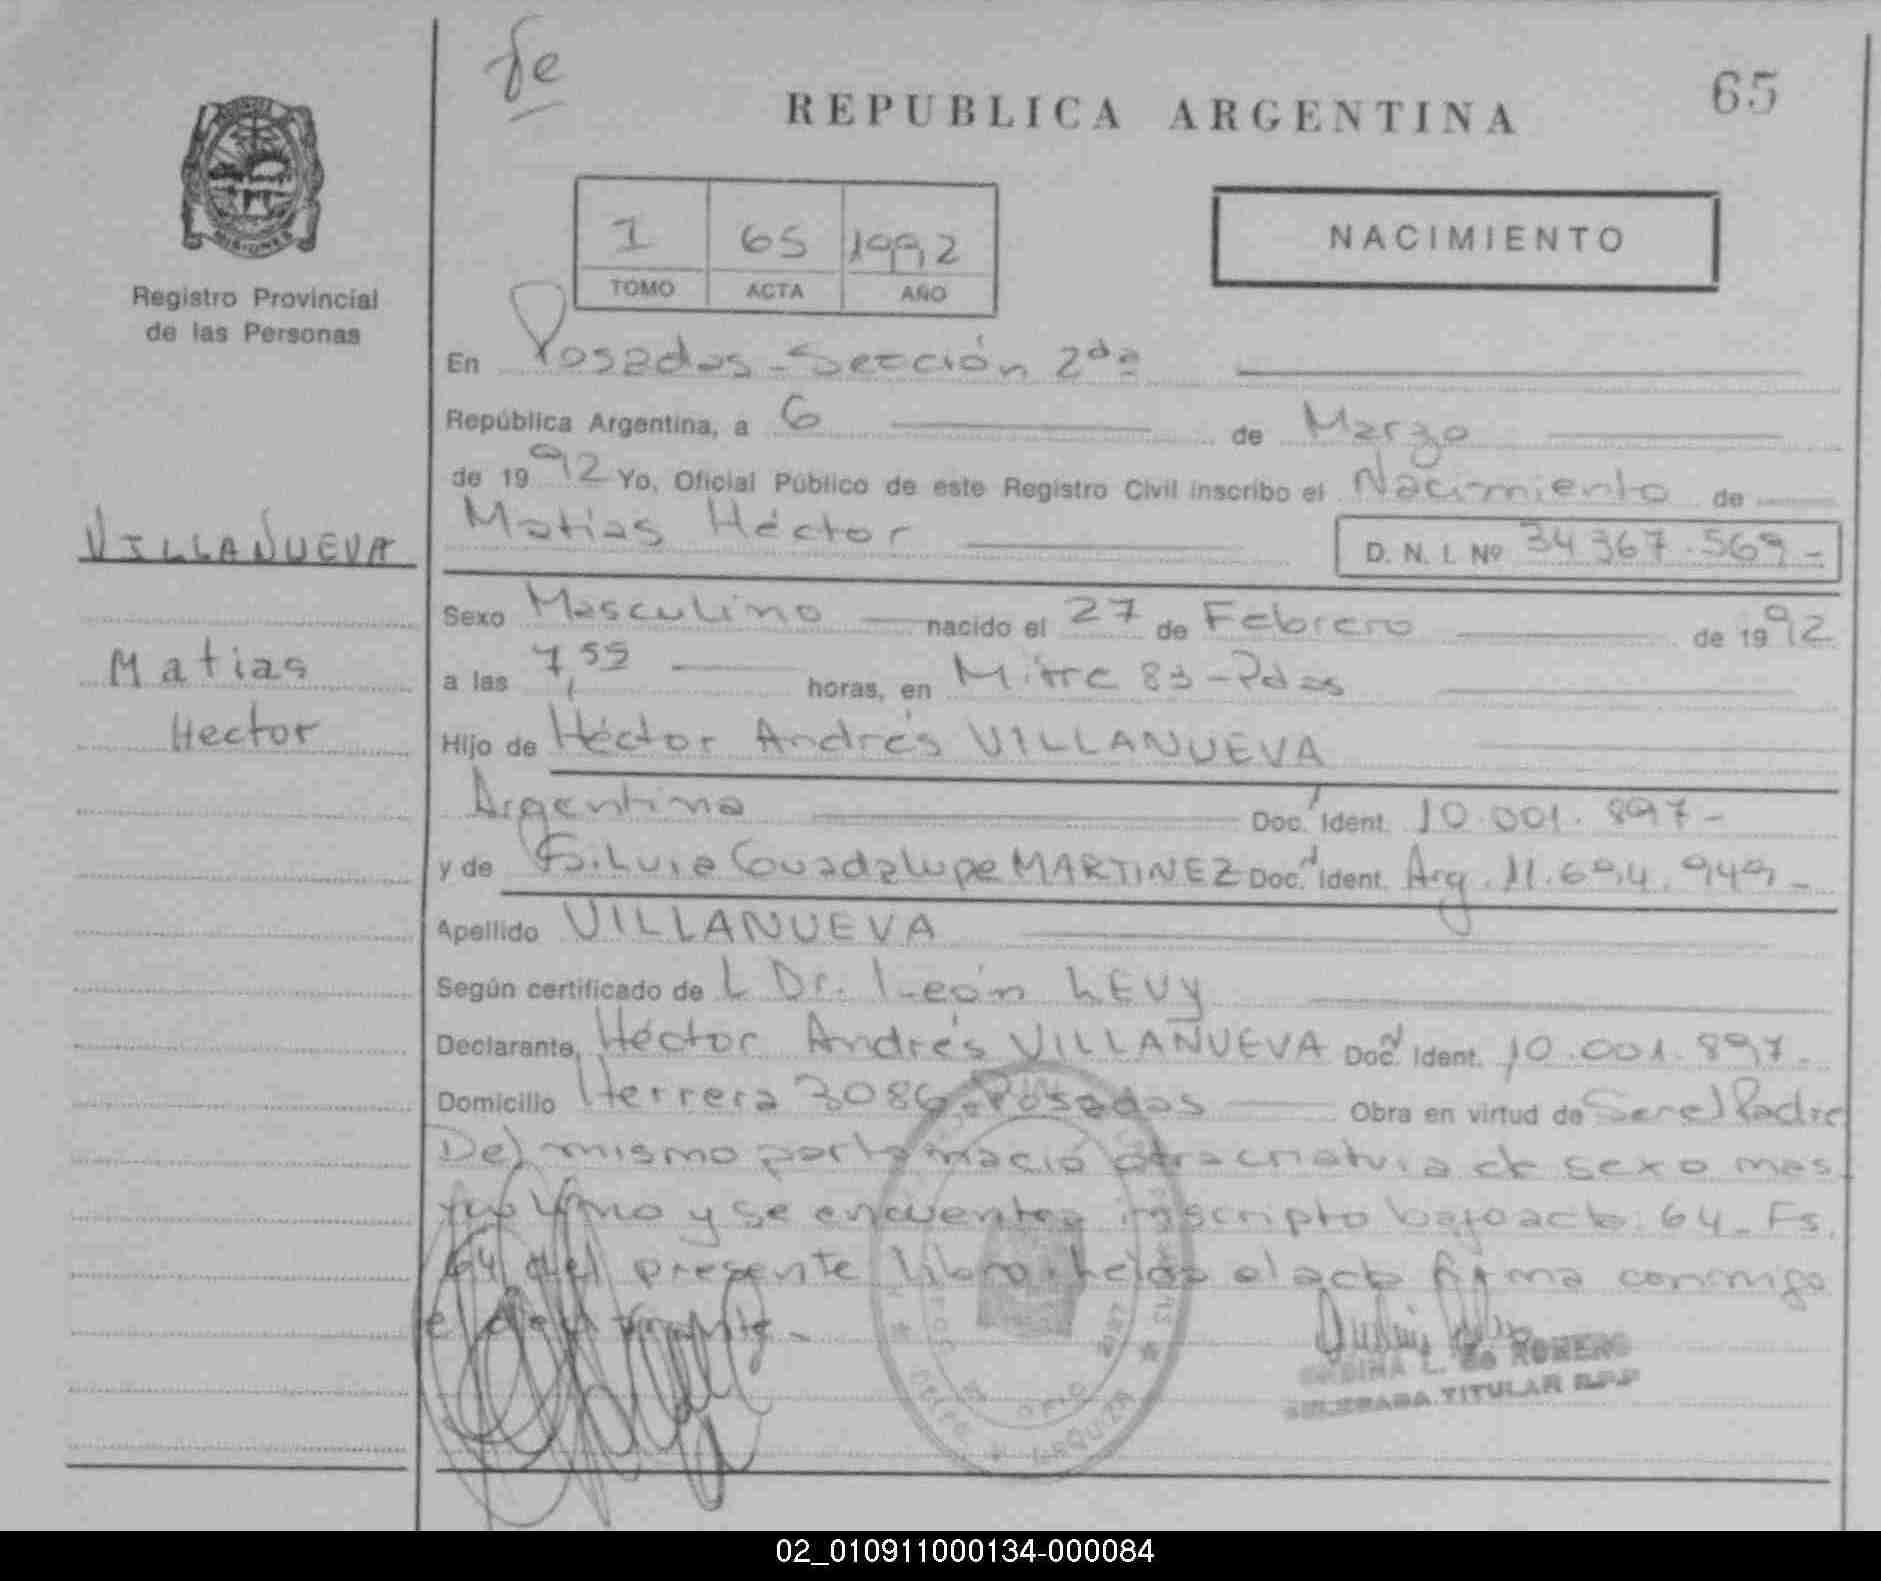 fe
REPUBLICA ARGENTINA
65
1 65 1992
TOMO ACTA AÑO
NACIMIENTO
MISIONES
Registro Provincial
de las Personas
En Posadas - Sección 2da
República Argentina, a 6 de Marzo
de 1992 Yo, Oficial Público de este Registro Civil inscribo el Nacimiento de
Matías Héctor D. N. I. Nº 34 367.569-
VILLANUEVA
Sexo Masculino nacido el 27 de Febrero de 1992
Matias
a las 7,55 horas, en Mitre 83 - Pdas
Hector
Hijo de Héctor Andrés VILLANUEVA
Argentina Doc. Ident. 10.001.897-
y de Silvia Guadalupe MARTINEZ Doc. Ident. Arg. 11.694.949-
Apellido VILLANUEVA
Según certificado de L Dr. León LEVY
Declarante, Héctor Andrés VILLANUEVA Doc. Ident. 10.001.897-
Domicilio Herrera 3086, Posadas Obra en virtud de Ser el Padre
Del mismo parto nació otra criatura de sexo mas
culino y se encuentra inscripto bajo acta 64 - Fs.
64 del presente libro. Leída el acta firma conmigo
el declarante.-
L. de ROMERO
TITULAR R.P.P
02_010911000134-000084